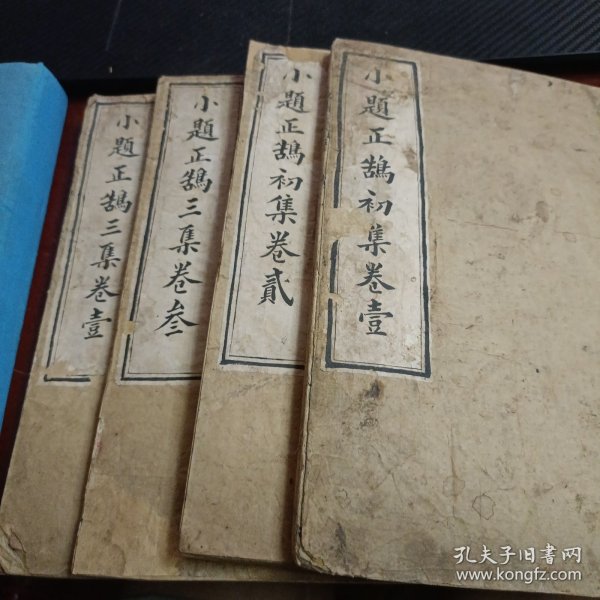 小題正鵠初集卷壹
小題正鵠初集卷貳
小題正鵠三集卷叁
小題正鵠三集卷壹
孔夫子旧書网
www.kongfz.com